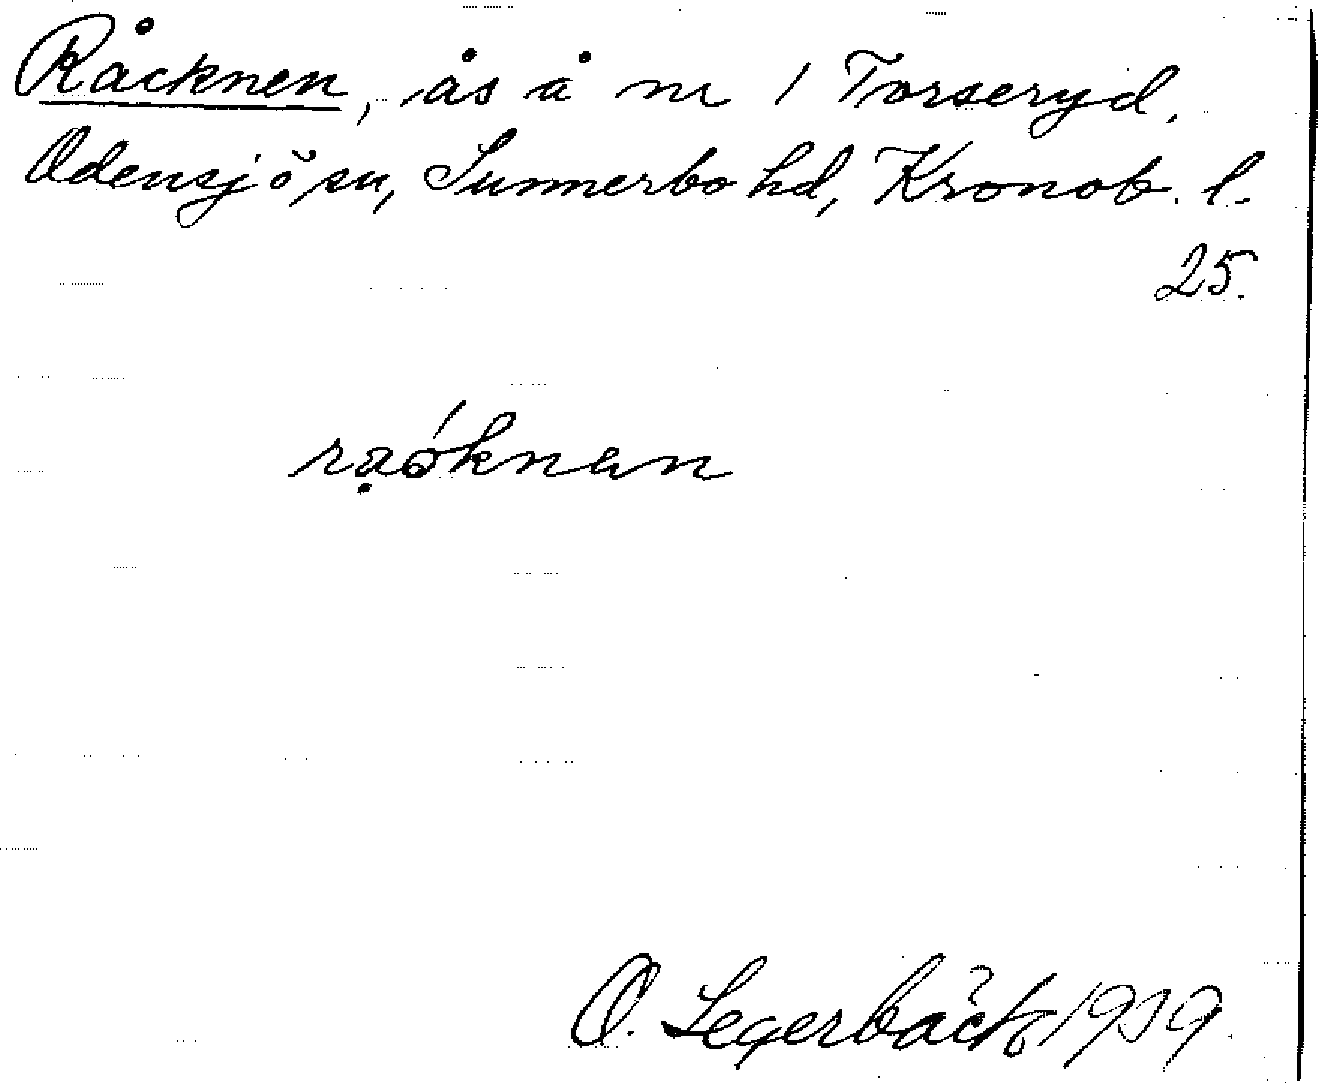 Råcknen, ås å nr 1 Torseryd.
Odensjö sn, Sunnerbo hd, Kronob. l.
25.
raóknen
O. Legerbäck 1939